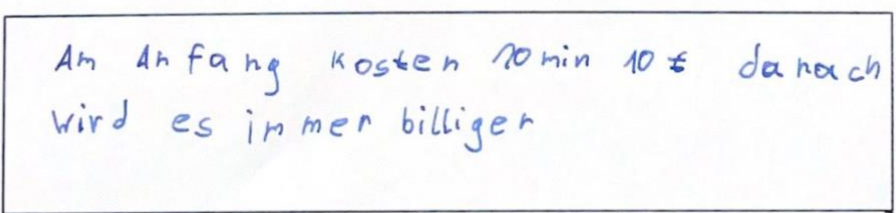 Am Anfang kosten 10 min 10 € danach
wird es immer billiger